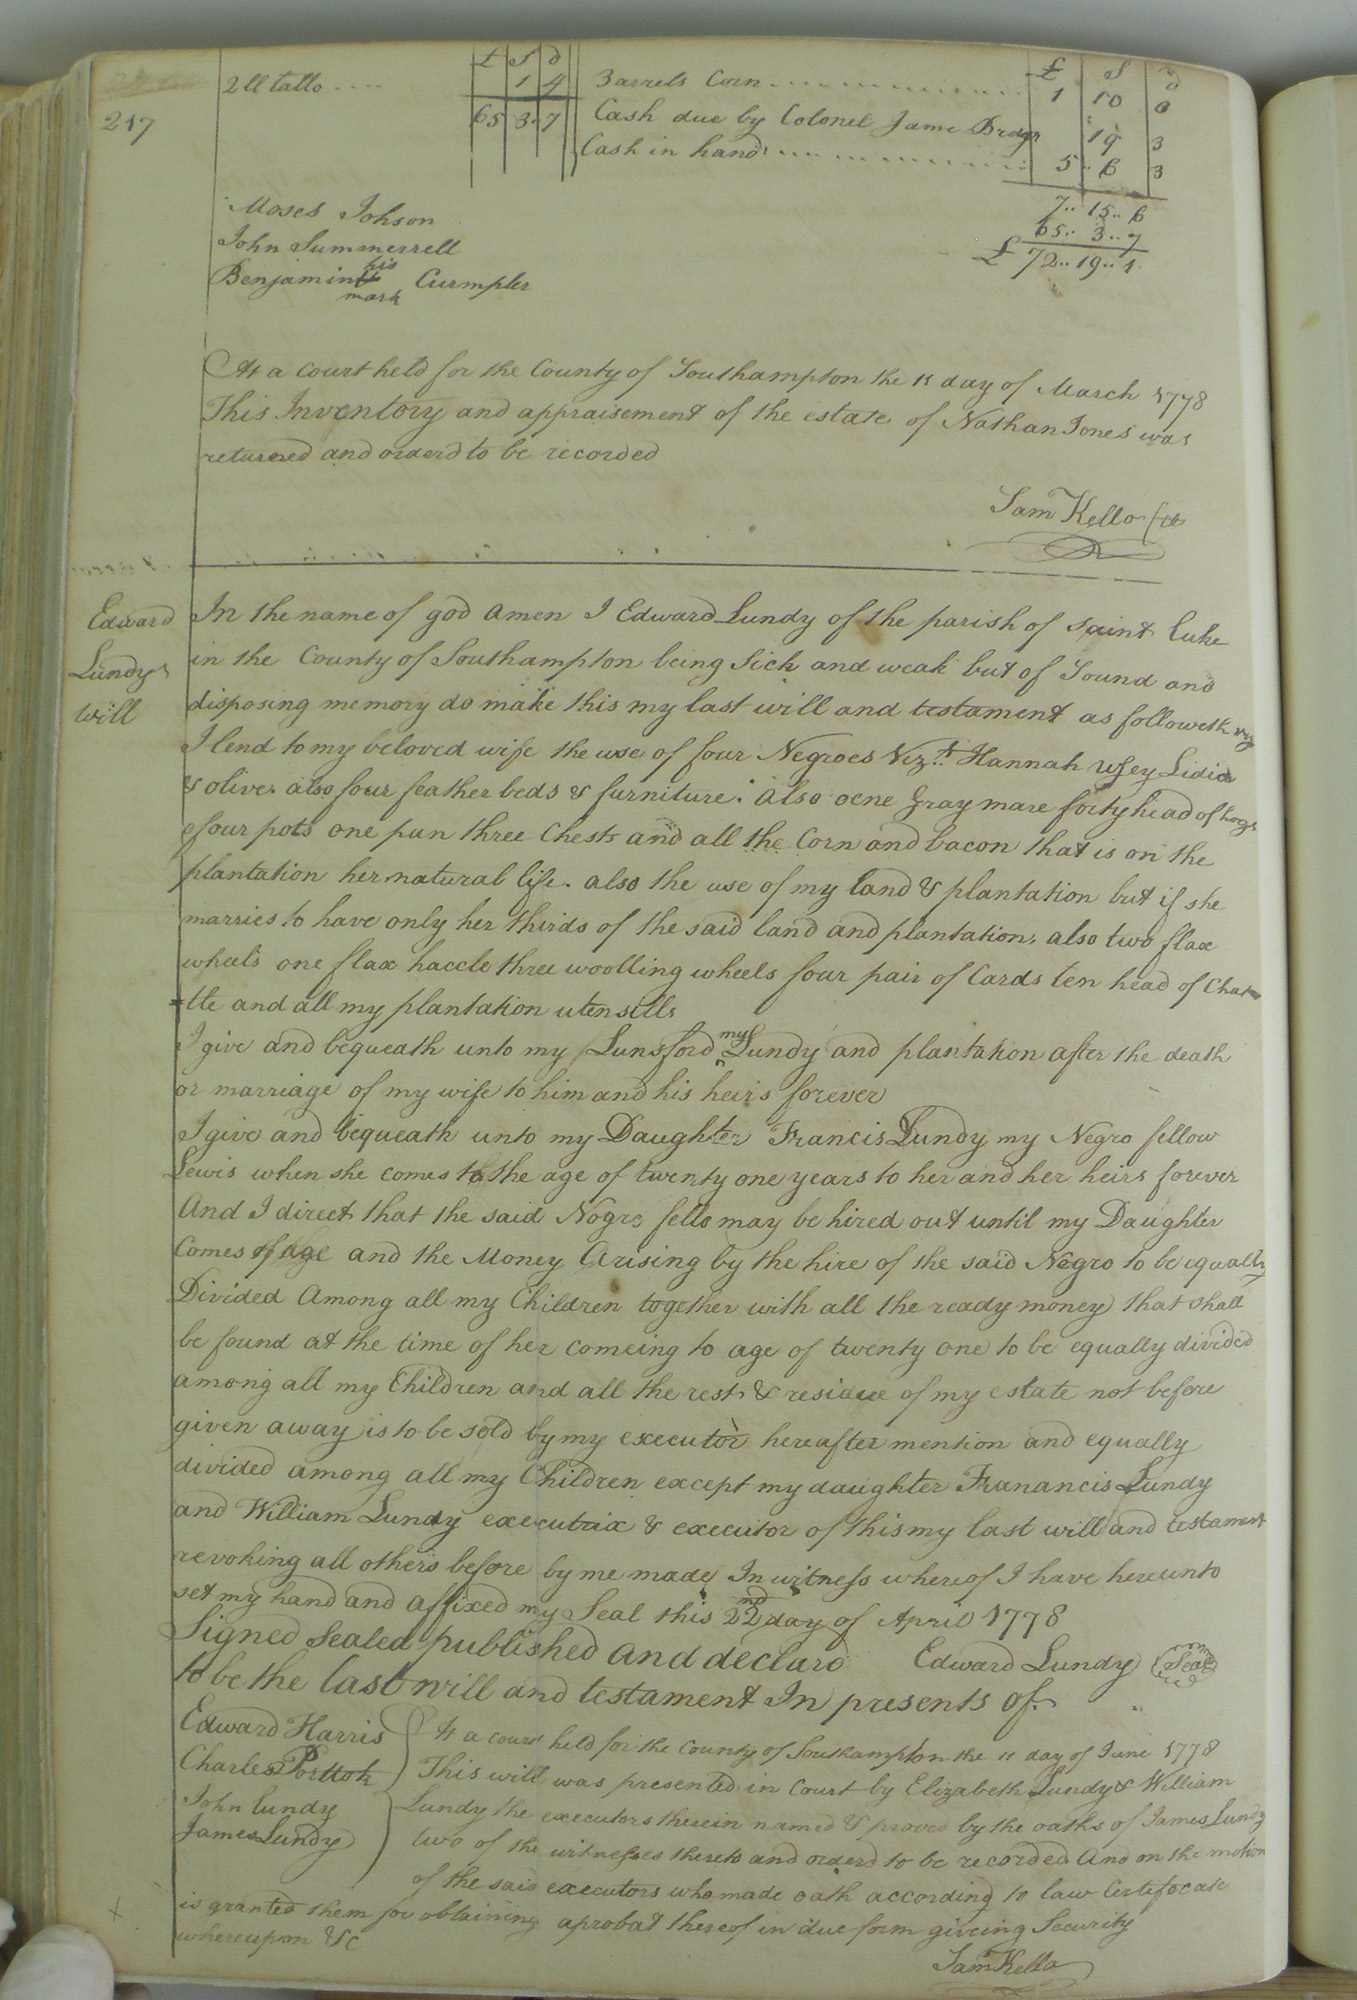 247
£ S D
2 ll tallo 1 4
65 3 7
£ S D
3 arrels Corn 1 10 0
Cash due by Colonel Jami Bridgr 19 3
Cash in hand 5 6 3
7 .. 15 .. 6
65 .. 3 .. 7
£ 72 .. 19 .. 1
Moses Johson
John Summerrell
Benjamin his mark Curmpler
At a court held for the County of Southampton the 11 day of March 1778
This Inventory and appraisement of the estate of Nathan Jones was
returned and orderd to be recorded
Sam Kello
Edward
Lundys
Will
In the name of god amen I Edward Lundy of the parish of saint luke
in the County of Southampton being Sick and weak but of Sound and
disposing memory do make this my last will and testament as followeth viz
I lend to my beloved wife the use of four Negroes Viz.t Hannah Lidia
& olive also four feather beds & furniture. also oene gray mare forty head of hogs
four pots one pan three Chests and all the Corn and bacon that is on the
plantation her natural life. also the use of my land & plantation but if she
marries to have only her thirds of the said land and plantation, also two flax
wheels one flax haccle three woolling wheels four pair of Cards ten head of Chat
=tle and all my plantation utensills
I give and bequeath unto my Lunsford my Lundy and plantation after the death
or marriage of my wife to him and his heirs forever
I give and bequeath unto my Daughter Francis Lundy my Negro fellow
Lewis when she comes to the age of twenty one years to her and her heirs forever
And I direct that the said Nogro fello may be hired out until my Daughter
Comes of age and the Money Arising by the hire of the said Negro to be equally
Divided Among all my Children together with all the ready money that shall
be found at the time of her comeing to age of twenty one to be equally divided
among all my Children and all the rest & residue of my estate not before
given away is to be sold by my executor hereafter mention and equally
divided among all my Children except my daughter Franancis Lundy
and William Lundy executrix & executor of this my last will and testament
revoking all others before by me made In witness whereof I have hereunto
set my hand and affixed my Seal this 22nd day of April 1778
Signed Sealed published and declard Edward Lundy Seal
to be the last will and testament In presents of
Edward Harris
Charles Porttok
John Lundy
James Lundy
At a court held for the County of Southampton the 11 day of June 1778
This will was presented in Court by Elizabeth Lundy & William
Lundy the executors therein named & proved by the oaths of James Lundy
two of the witnesses thereto and orderd to be recorded And on the motion
of the said executors who made oath according to law Certifocate
is granted them for obtaining aprobat thereof in due form giveing Security
whereupon &c
Sam Kello